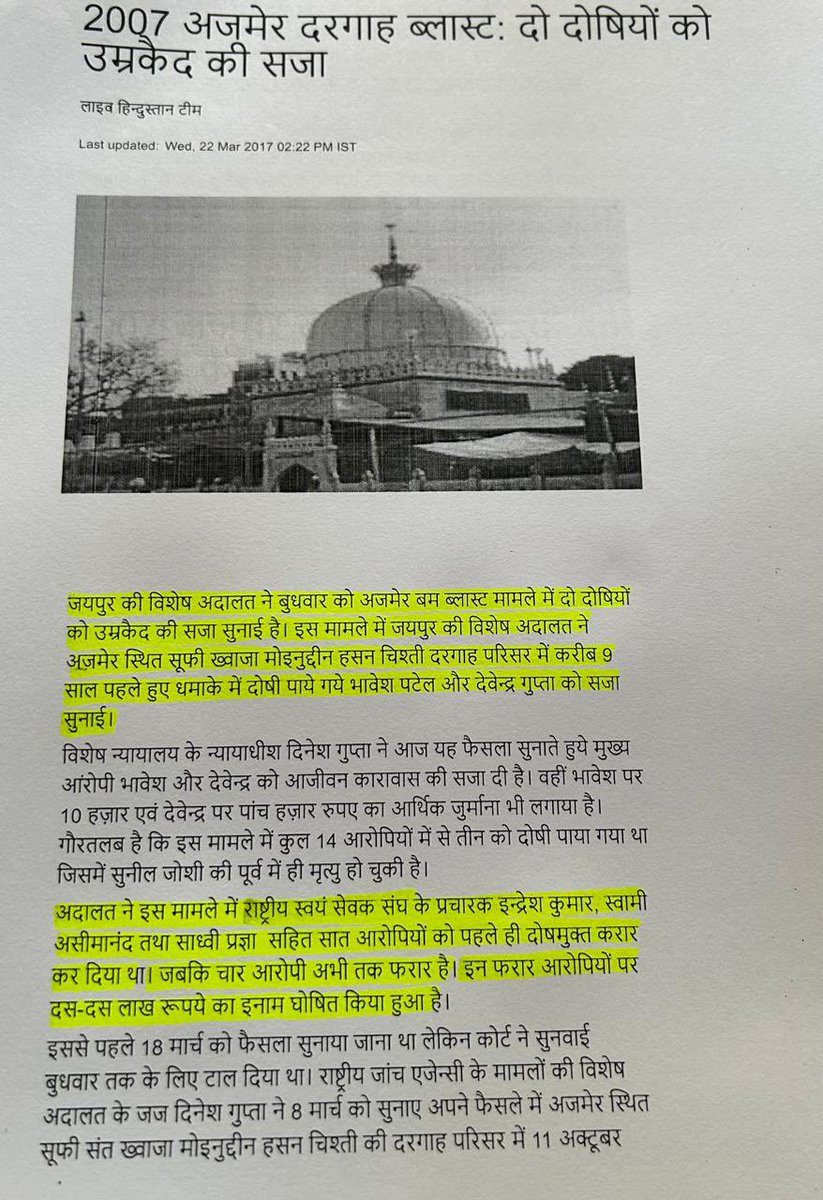 2007 अजमेर दरगाह ब्लास्ट: दो दोषियों को
उम्रकैद की सजा
लाइव हिन्दुस्तान टीम
Last updated: Wed, 22 Mar 2017 02:22 PM IST
जयपुर की विशेष अदालत ने बुधवार को अजमेर बम ब्लास्ट मामले में दो दोषियों
को उम्रकैद की सजा सुनाई है। इस मामले में जयपुर की विशेष अदालत ने
अज़मेर स्थित सूफी ख्वाजा मोइनुद्दीन हसन चिश्ती दरगाह परिसर में करीब 9
साल पहले हुए धमाके में दोषी पाये गये भावेश पटेल और देवेन्द्र गुप्ता को सजा
सुनाई।
विशेष न्यायालय के न्यायाधीश दिनेश गुप्ता ने आज यह फैसला सुनाते हुये मुख्य
आंरोपी भावेश और देवेन्द्र को आजीवन कारावास की सजा दी है। वहीं भावेश पर
10 हज़ार एवं देवेन्द्र पर पांच हज़ार रुपए का आर्थिक जुर्माना भी लगाया है।
गौरतलब है कि इस मामले में कुल 14 आरोपियों में से तीन को दोषी पाया गया था
जिसमें सुनील जोशी की पूर्व में ही मृत्यु हो चुकी है।
अदालत ने इस मामले में राष्ट्रीय स्वयं सेवक संघ के प्रचारक इन्द्रेश कुमार, स्वामी
असीमानंद तथा साध्वी प्रज्ञा सहित सात आरोपियों को पहले ही दोषमुक्त करार
कर दिया था। जबकि चार आरोपी अभी तक फरार है। इन फरार आरोपियों पर
दस-दस लाख रूपये का इनाम घोषित किया हुआ है।
इससे पहले 18 मार्च को फैसला सुनाया जाना था लेकिन कोर्ट ने सुनवाई
बुधवार तक के लिए टाल दिया था। राष्ट्रीय जांच एजेन्सी के मामलों की विशेष
अदालत के जज दिनेश गुप्ता ने 8 मार्च को सुनाए अपने फैसले में अजमेर स्थित
सूफी संत ख्वाजा मोइनुद्दीन हसन चिश्ती की दरगाह परिसर में 11 अक्टूबर